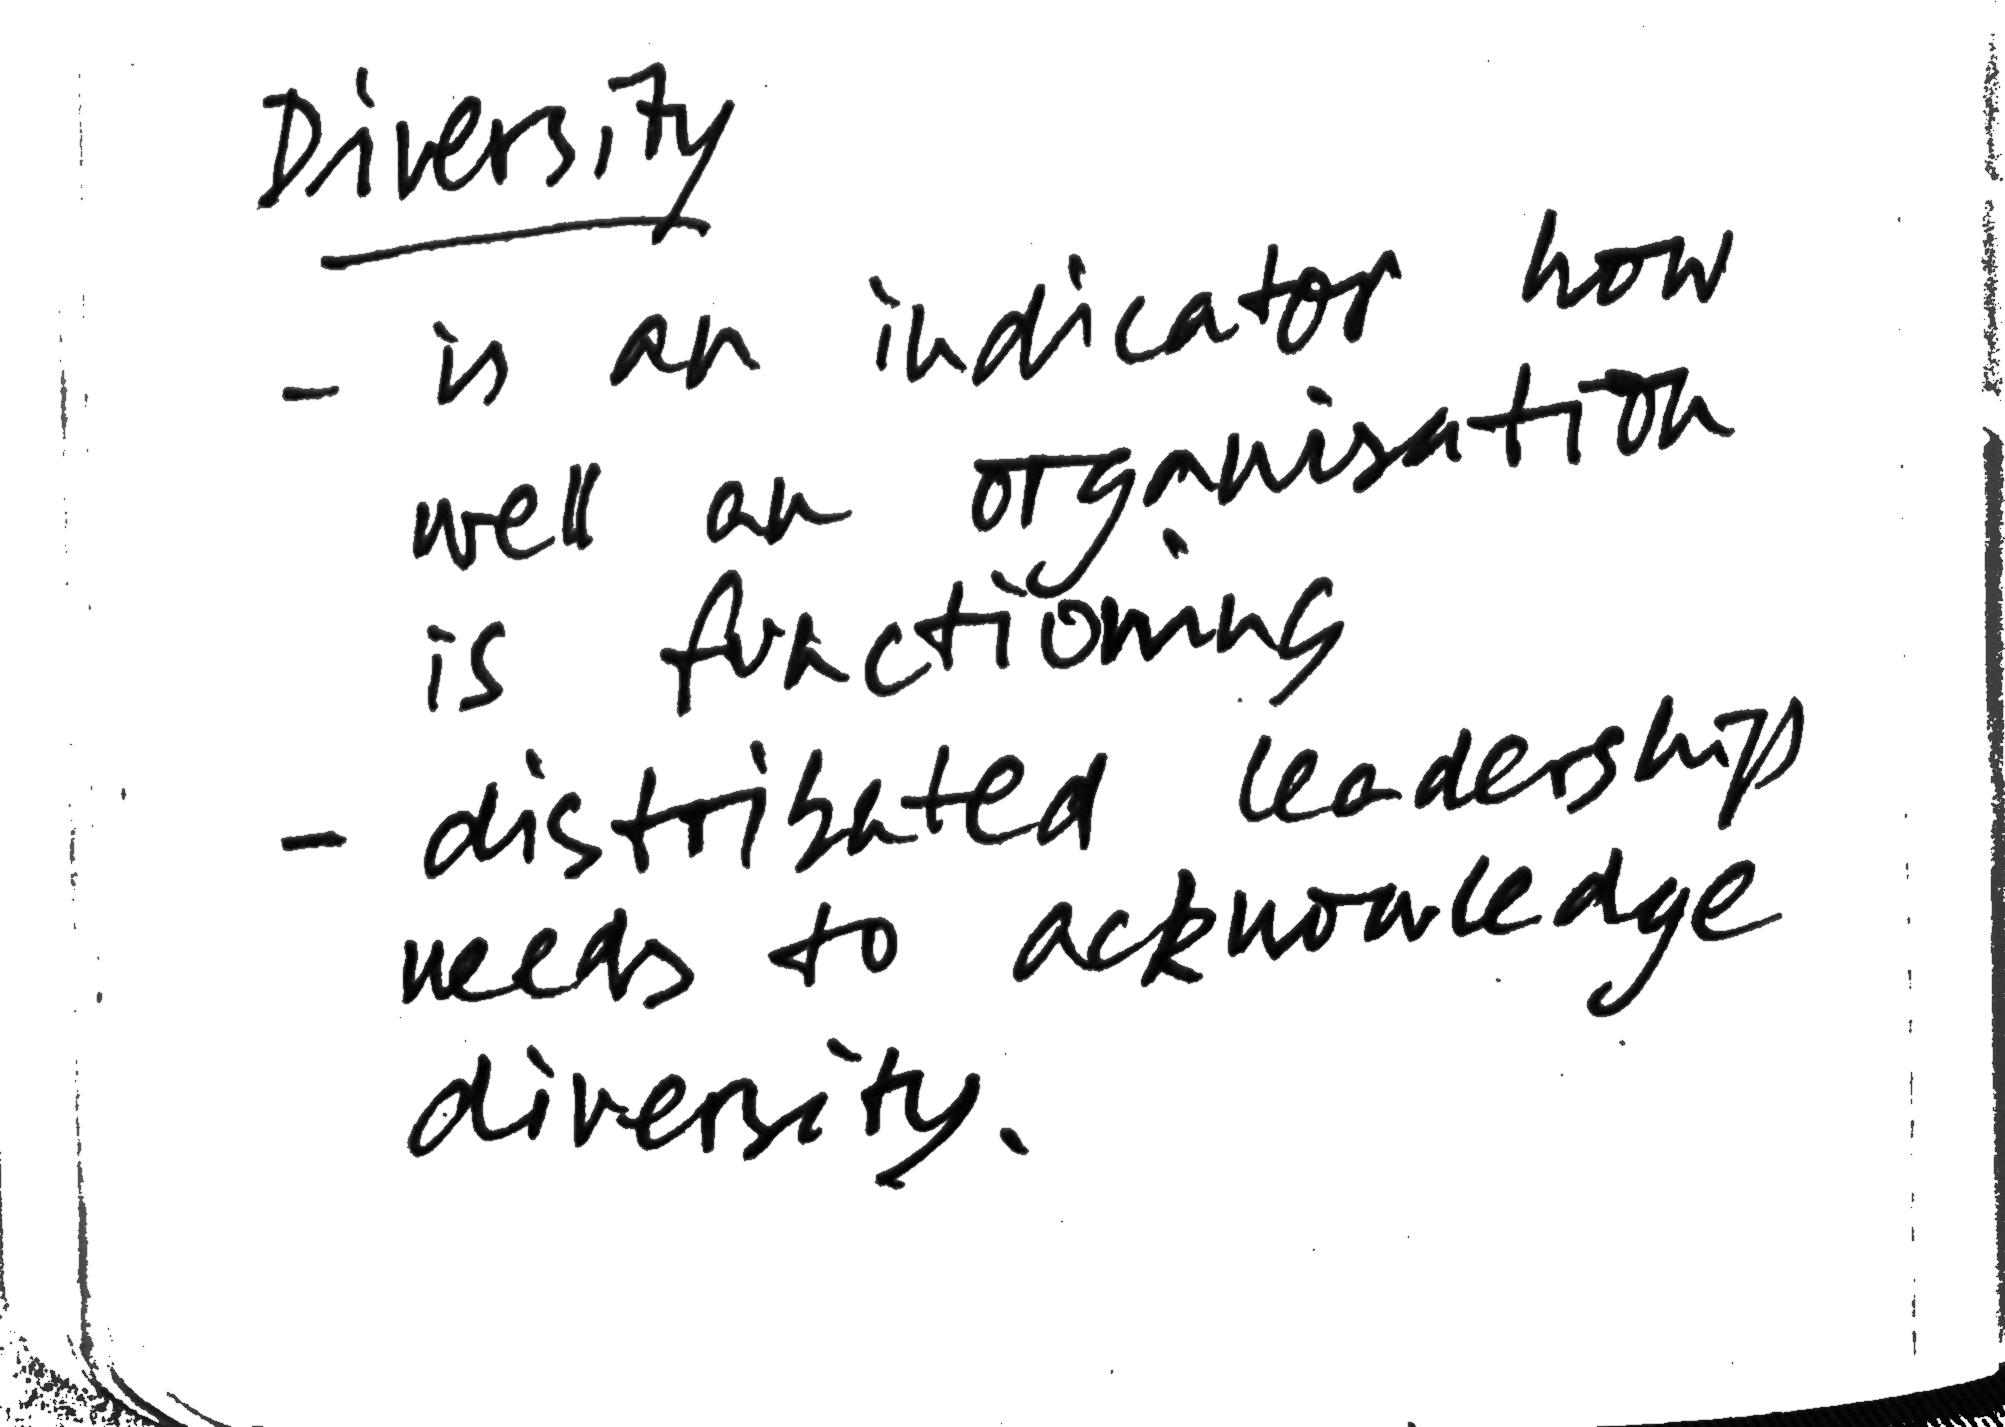 Diversity
- is an indicator how
well an organisation
is functioning
- distributed leadership
needs to acknowledge
diversity.